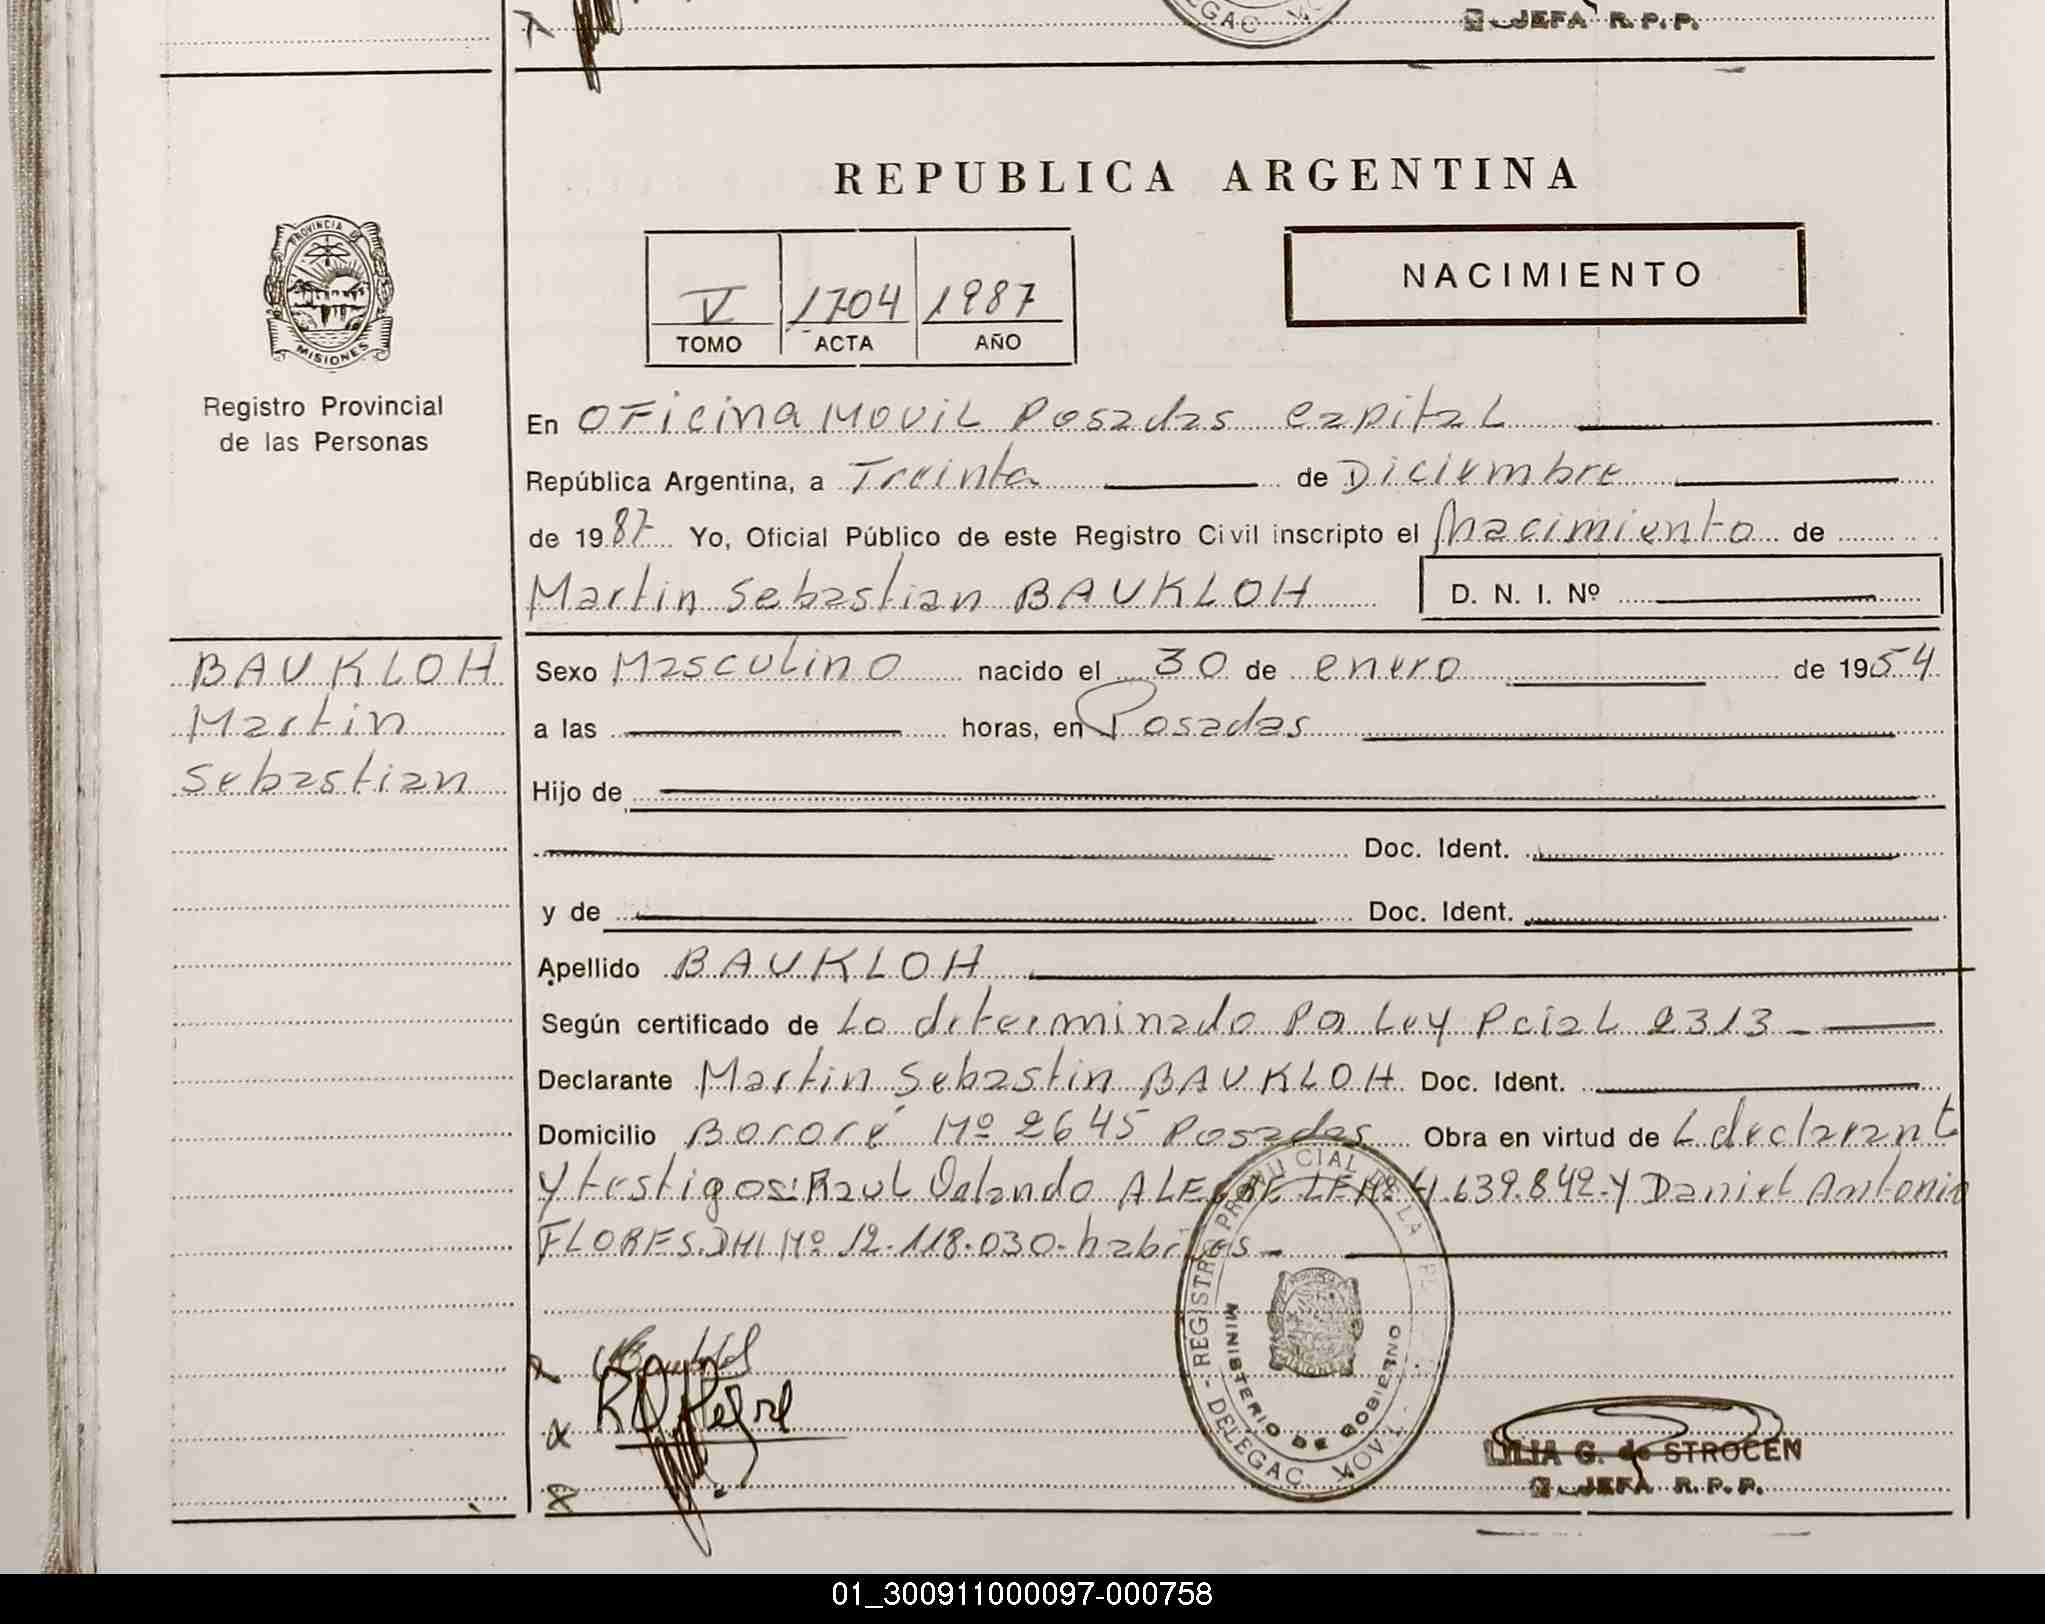 DELEGAC. MOVI
S. JEFA R. P. P.
REPUBLICA ARGENTINA
PROVINCIA DE
MISIONES
Registro Provincial
de las Personas
V 1704 1987
TOMO ACTA AÑO
NACIMIENTO
En OFicina MOVIL Posadas capital
República Argentina, a Treinta de Diciembre
de 1987 Yo, Oficial Público de este Registro Civil inscripto el Nacimiento de
Martin Sebastian BAUKLOH D. N. I. Nº
BAUKLOH
Martin
Sebastian
Sexo Masculino nacido el 30 de enero de 1954
a las horas, en Posadas
Hijo de
Doc. Ident.
y de Doc. Ident.
Apellido BAUKLOH
Según certificado de Lo determinado Por Ley Pcial 2313
Declarante Martin Sebastin BAUKLOH Doc. Ident.
Domicilio Bororé Nº 2645 Posadas Obra en virtud de L declarant
y testigos: Raul Orlando ALEGRE LE Nº 4.639.842 y Daniel Antonio
FLORES. DNI Nº 12.118.030. habiles
REGISTRO PROVINCIAL DE LA
MINISTERIO DE GOBIERNO
DELEGAC. MOVI
MISIONES
LILIA G. de STROCEN
S. JEFA R. P. P.
01_300911000097-000758